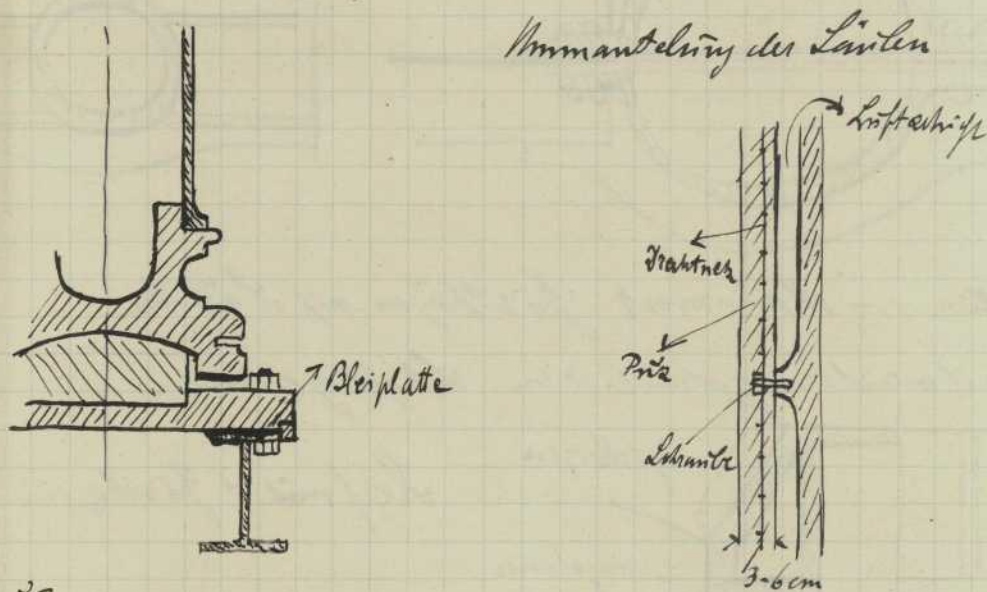 Ummantelung der Säulen
Luftschicht
Drahtnetz
Putz
Bleiplatte
Schraube
3-6 cm